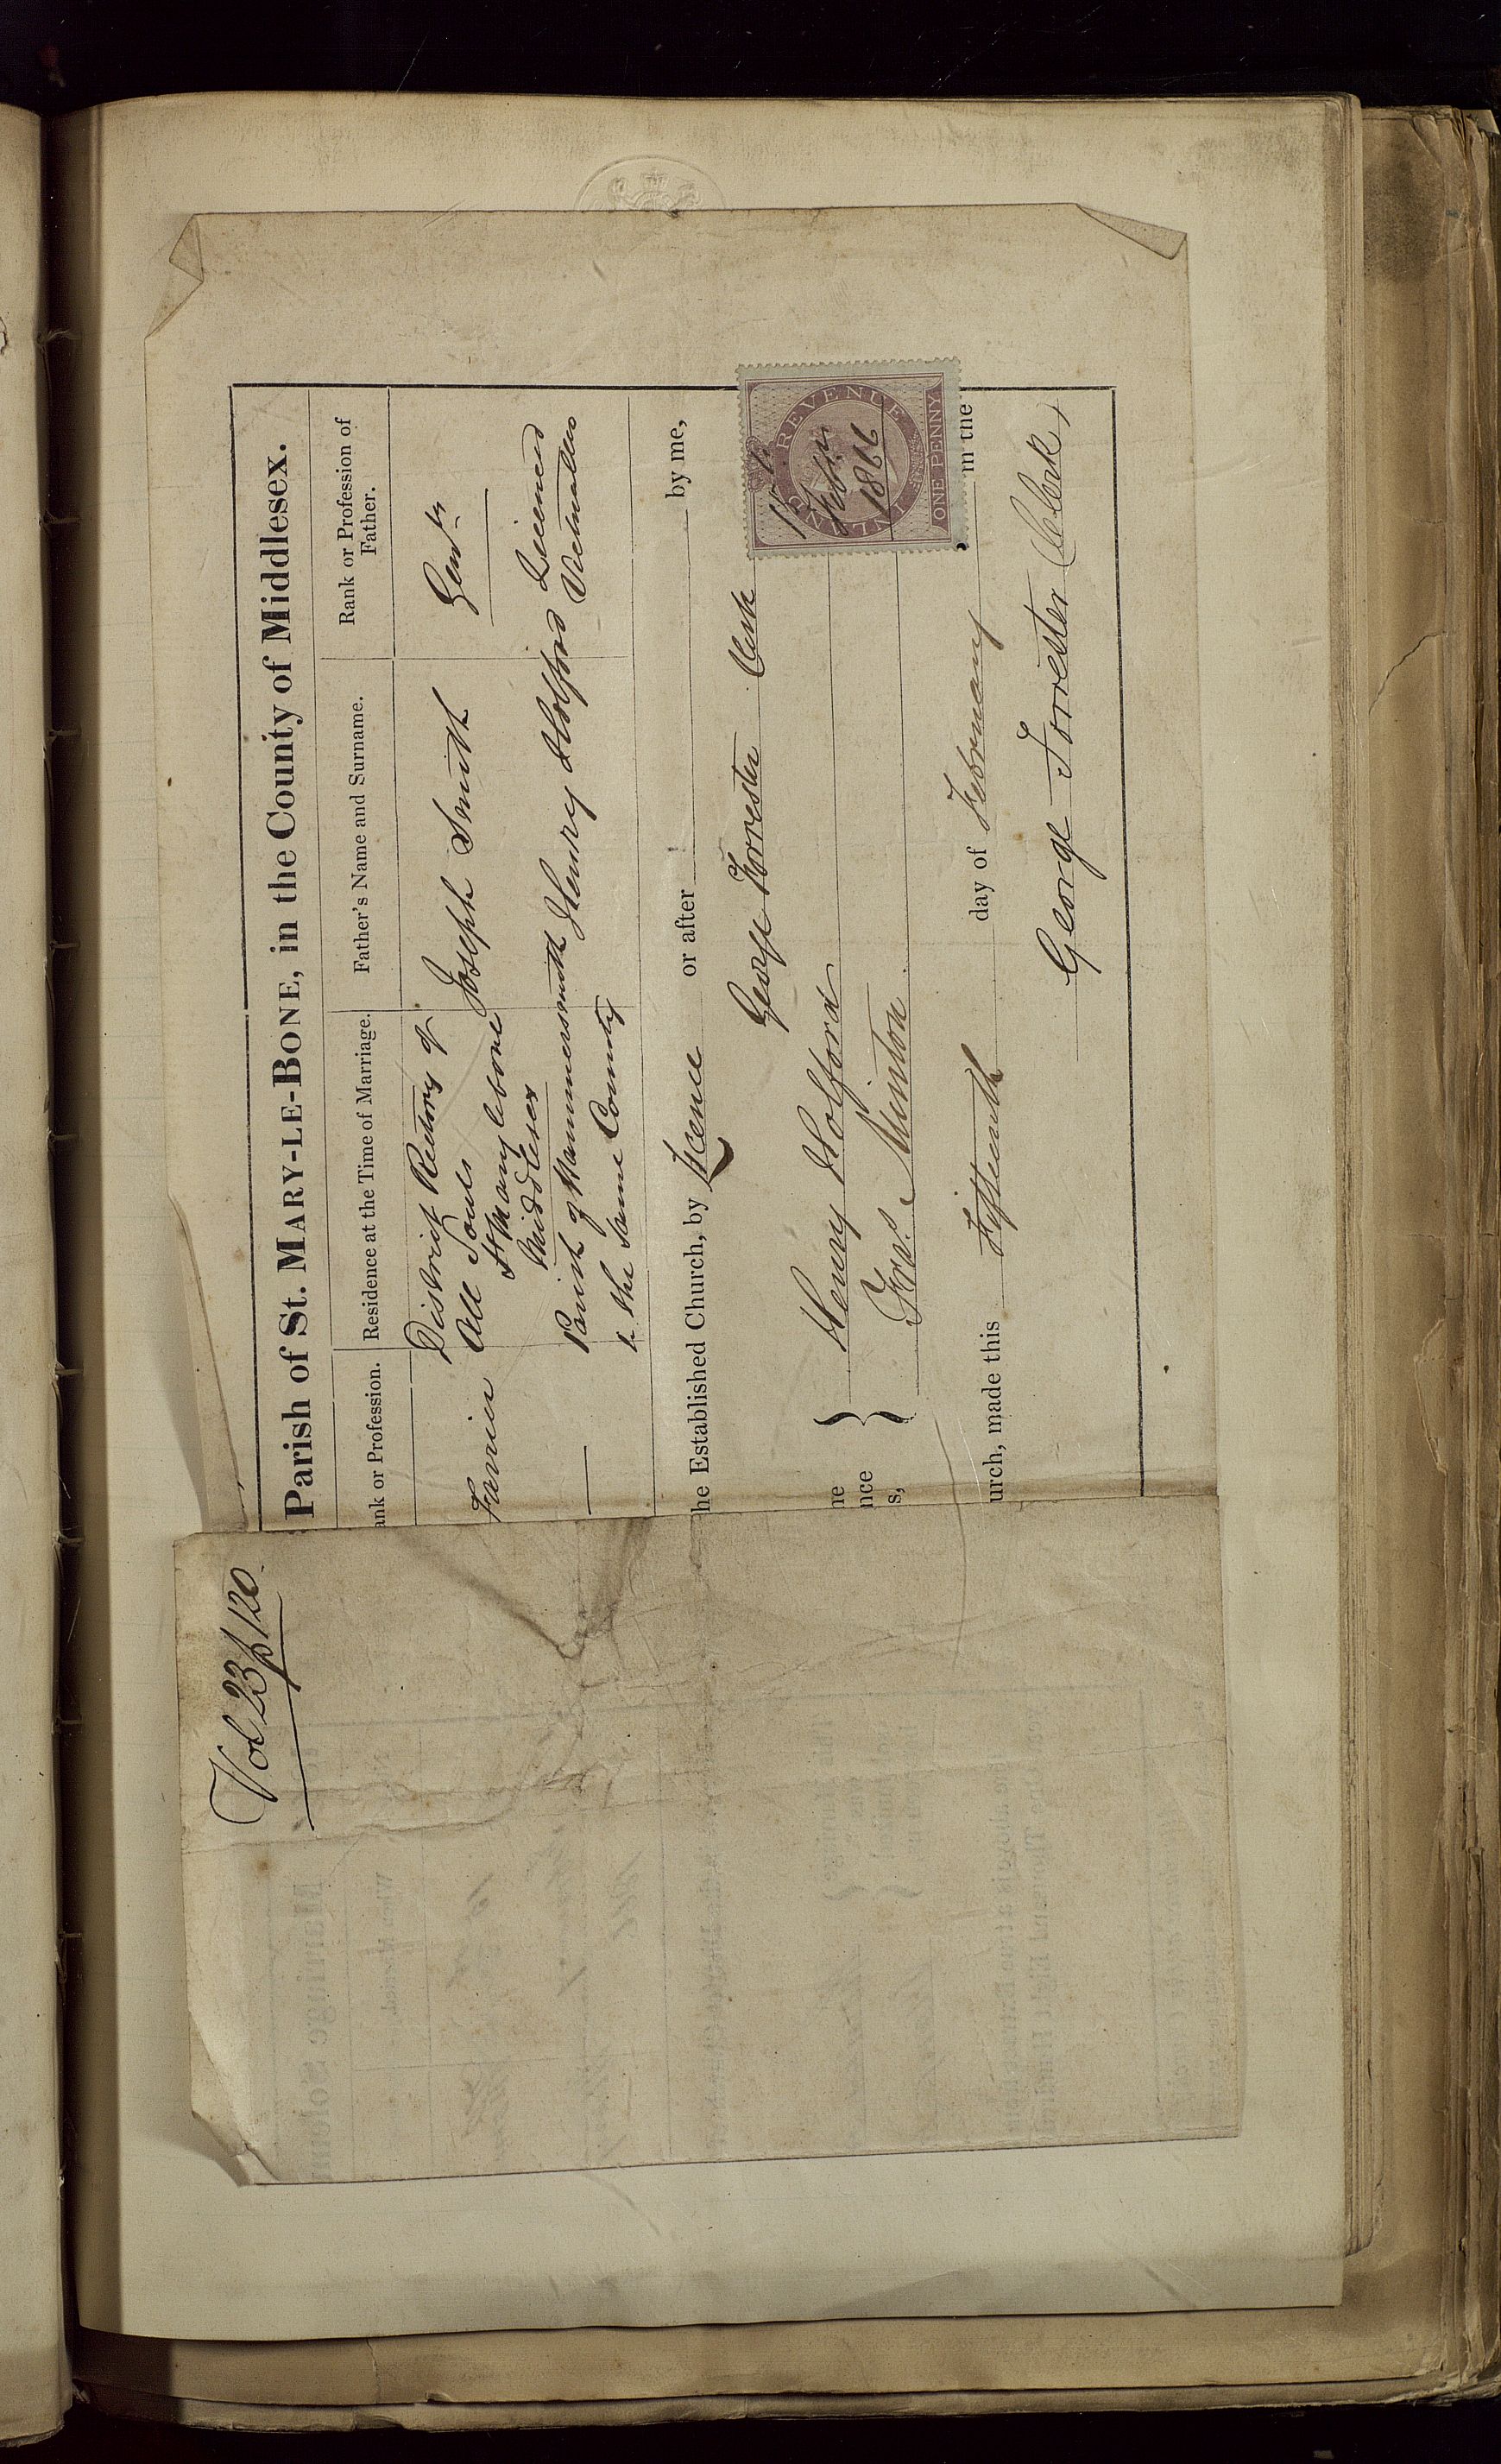 Vol 23 p 120.
Parish of St. MARY-LE-BONE, in the County of Middlesex.
ank or Profession.
Residence at the Time of Marriage.
Father's Name and Surname.
Rank or Profession of
Father.
Farrier
District Rectory of
All Souls
St Marylebone
Middlesex
Joseph Smith
Gentn
—
Parish of Hammersmith
in the Same County
Henry Holford
Licenced
Victualler
he Established Church, by Licence or after by me,
George Forrester Clerk
re
nce
s,
Henry Holford
Frs. Minton
urch, made this Fifteenth day of February in the
George Forrester Clerk,
INLAND REVENUE
ONE PENNY
15
Feby
1866